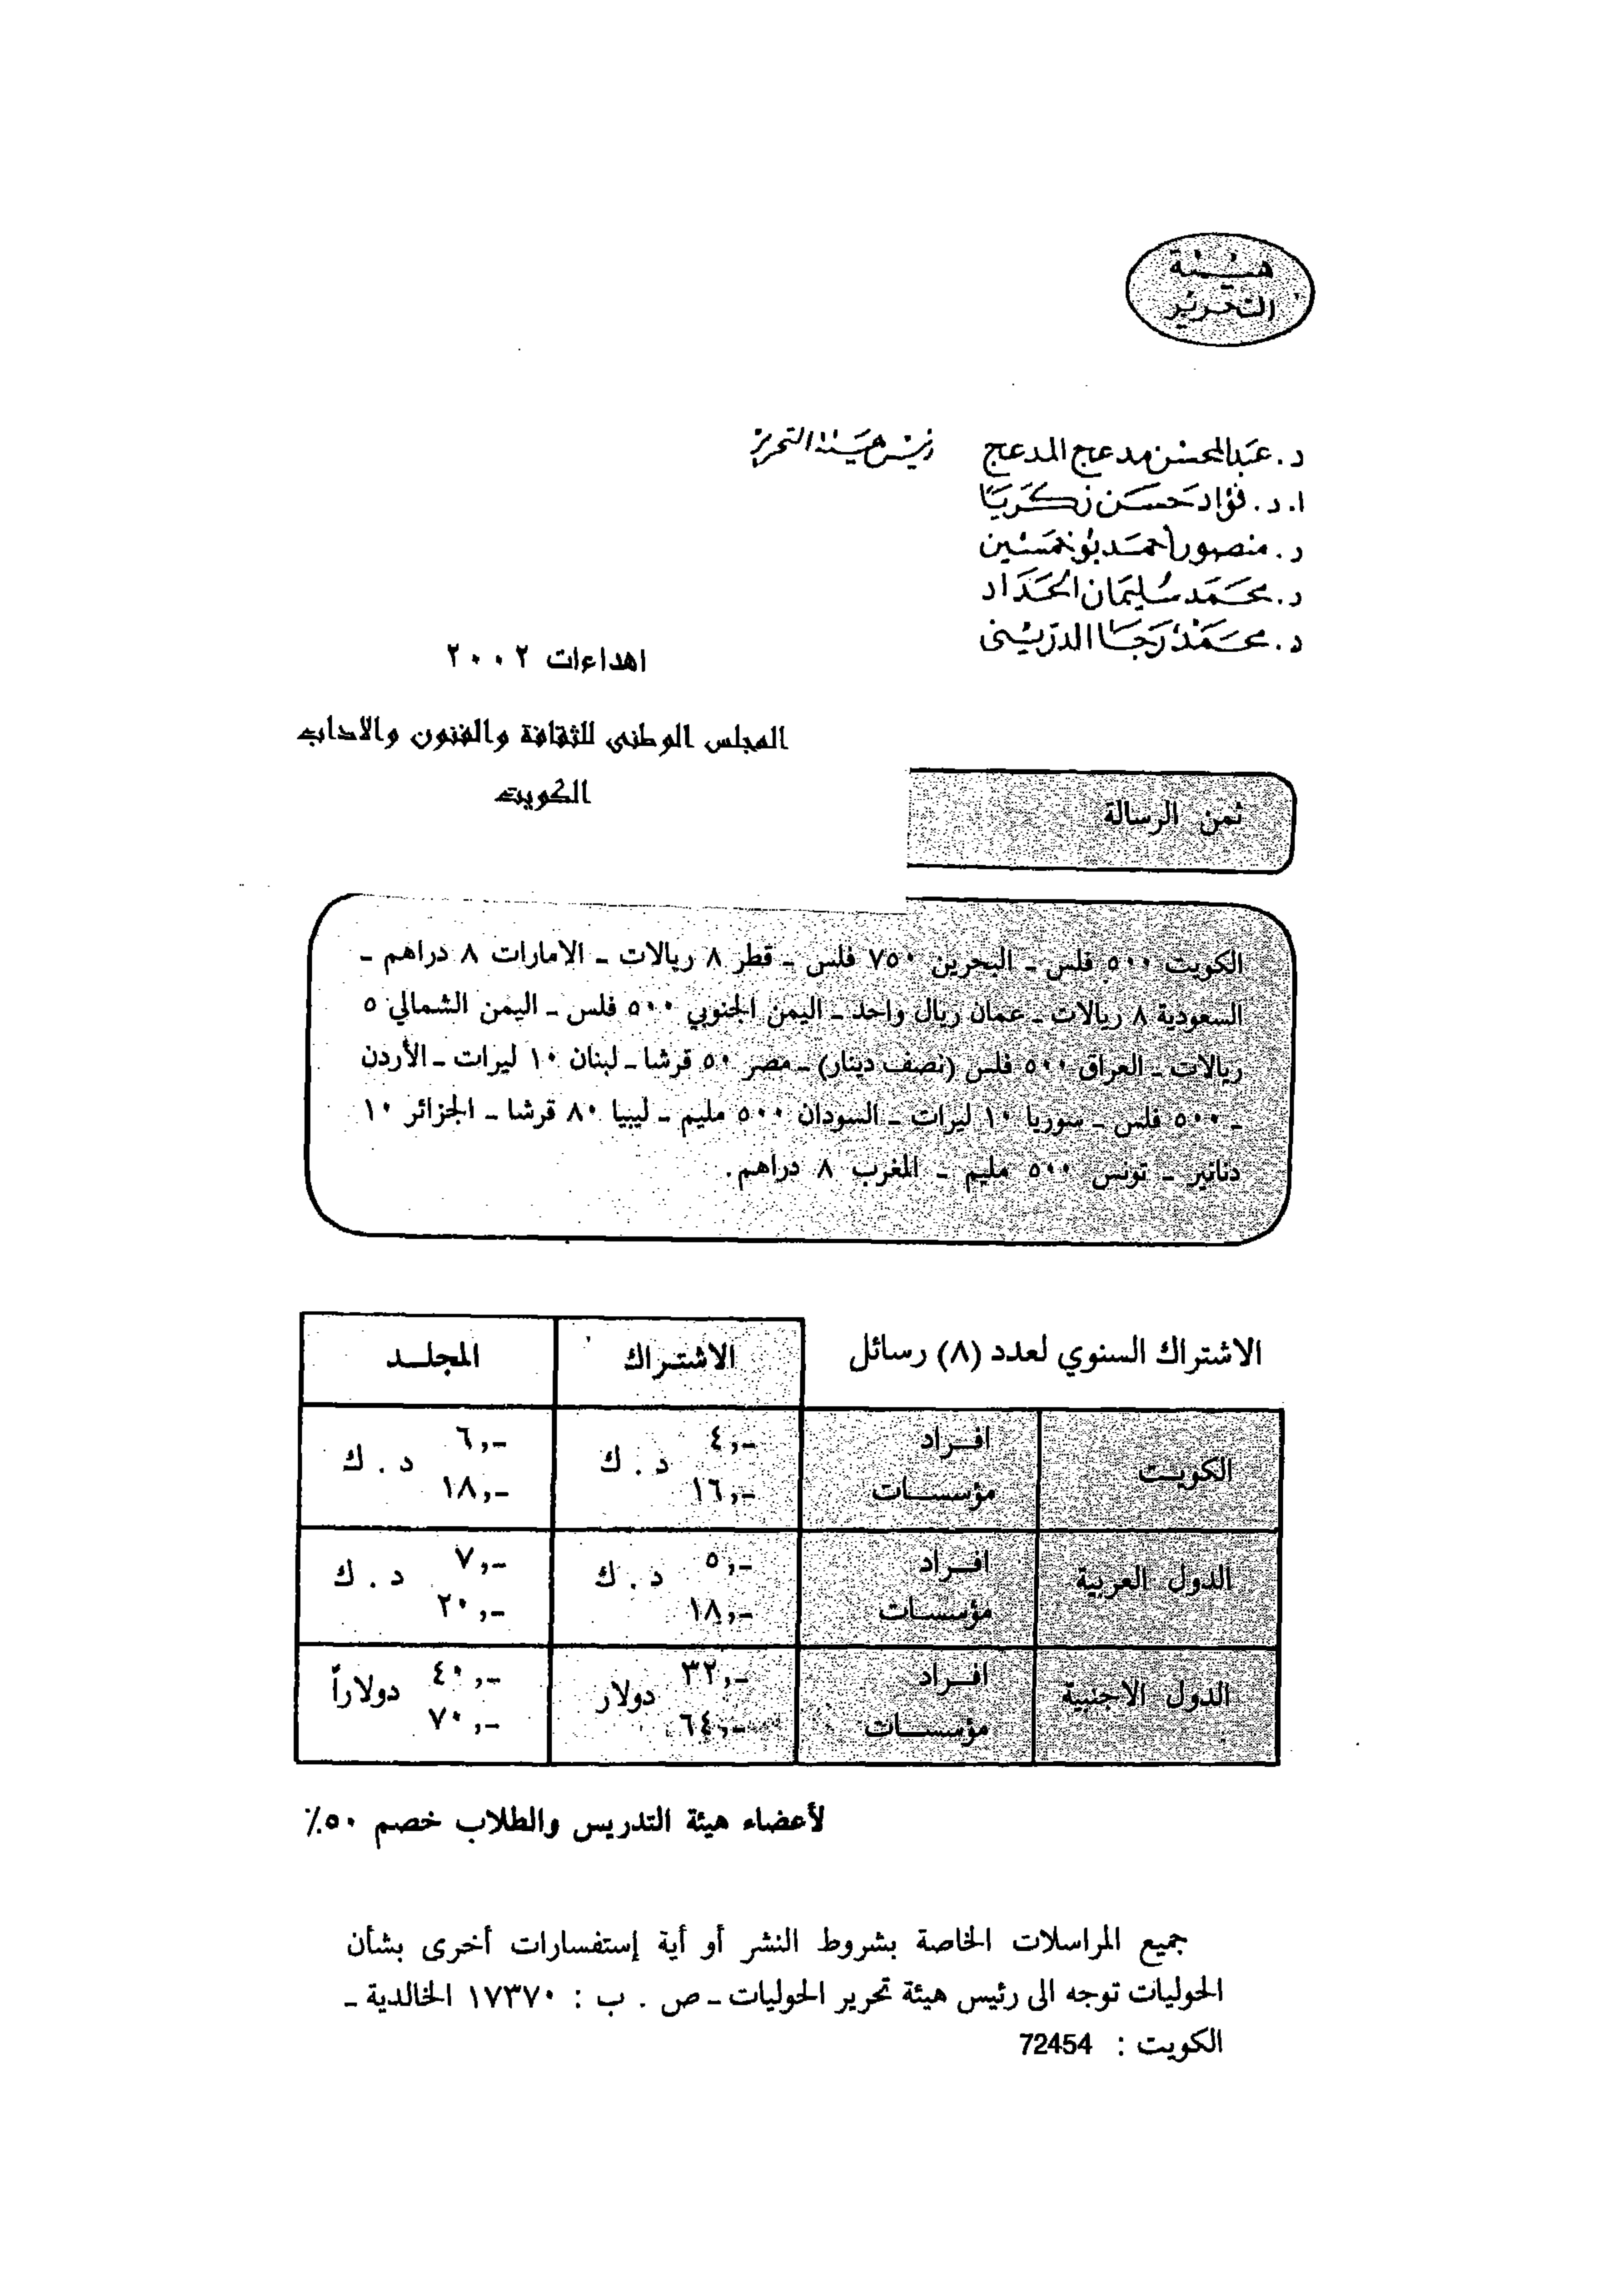 هيئة
التحرير
د. عبدالمحسن مدعج المدعج رئيس هيئة التحرير
ا. د. فؤاد حسن زكريا
د. منصور أحمد بوخمسين
د. محمد سليمان الحداد
د. محمد رجا الدريني
اهداءات ٢٠٠٢
المجلس الوطنى للثقافة والفنون والاداب
الكويت
ثمن الرسالة
الكويت ٥٠٠ فلس ـ البحرين ٧٥٠ فلس ـ قطر ٨ ريالات ـ الامارات ٨ دراهم ـ
السعودية ٨ ريالات ـ عمان ريال واحد ـ اليمن الجنوبي ٥٠٠ فلس ـ اليمن الشمالي ٥
ريالات ـ العراق ٥٠٠ فلس (نصف دينار) ـ مصر ٥٠ قرشا ـ لبنان ١٠ ليرات ـ الأردن
ـ ٥٠٠ فلس ـ سوريا ١٠ ليرات ـ السودان ٥٠٠ مليم ـ ليبيا ٨٠ قرشا ـ الجزائر ١٠
دنانير ـ تونس ٥٠٠ مليم ـ المغرب ٨ دراهم.
الاشتراك السنوي لعدد (٨) رسائل الاشتراك المجلد
الكويت افراد ٤,- د . ك ٦,- د . ك
مؤسسات ١٦,- ١٨,-
الدول العربية افراد ٥,- د . ك ٧,- د . ك
مؤسسات ١٨,- ٢٠,-
الدول الاجنبية افراد ٣٢,- دولار ٤٠,- دولاراً
مؤسسات ٦٤,- ٧٠,-
لأعضاء هيئة التدريس والطلاب خصم ٥٠٪
جميع المراسلات الخاصة بشروط النشر أو أية إستفسارات أخرى بشأن
الحوليات توجه الى رئيس هيئة تحرير الحوليات ـ ص . ب : ١٧٣٧٠ الخالدية ـ
الكويت : 72454